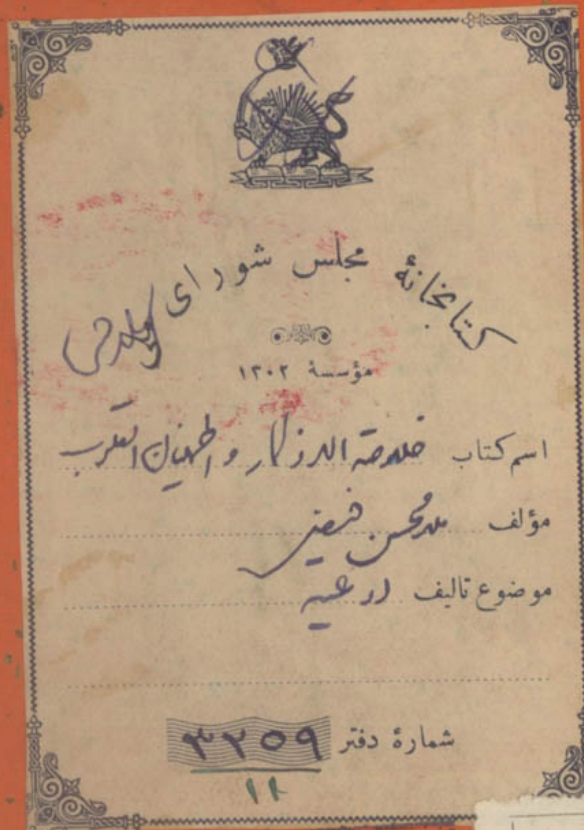 کتابخانهٔ مجلس شورای اسلامی
مؤسسهٔ ۱۳۰۲
اسم کتاب خلاصة الاذکار و اطمینان القلوب
مؤلف ملا محسن فیض
موضوع تالیف ادعیه
شمارهٔ دفتر ۳۲۵۹
۱۲